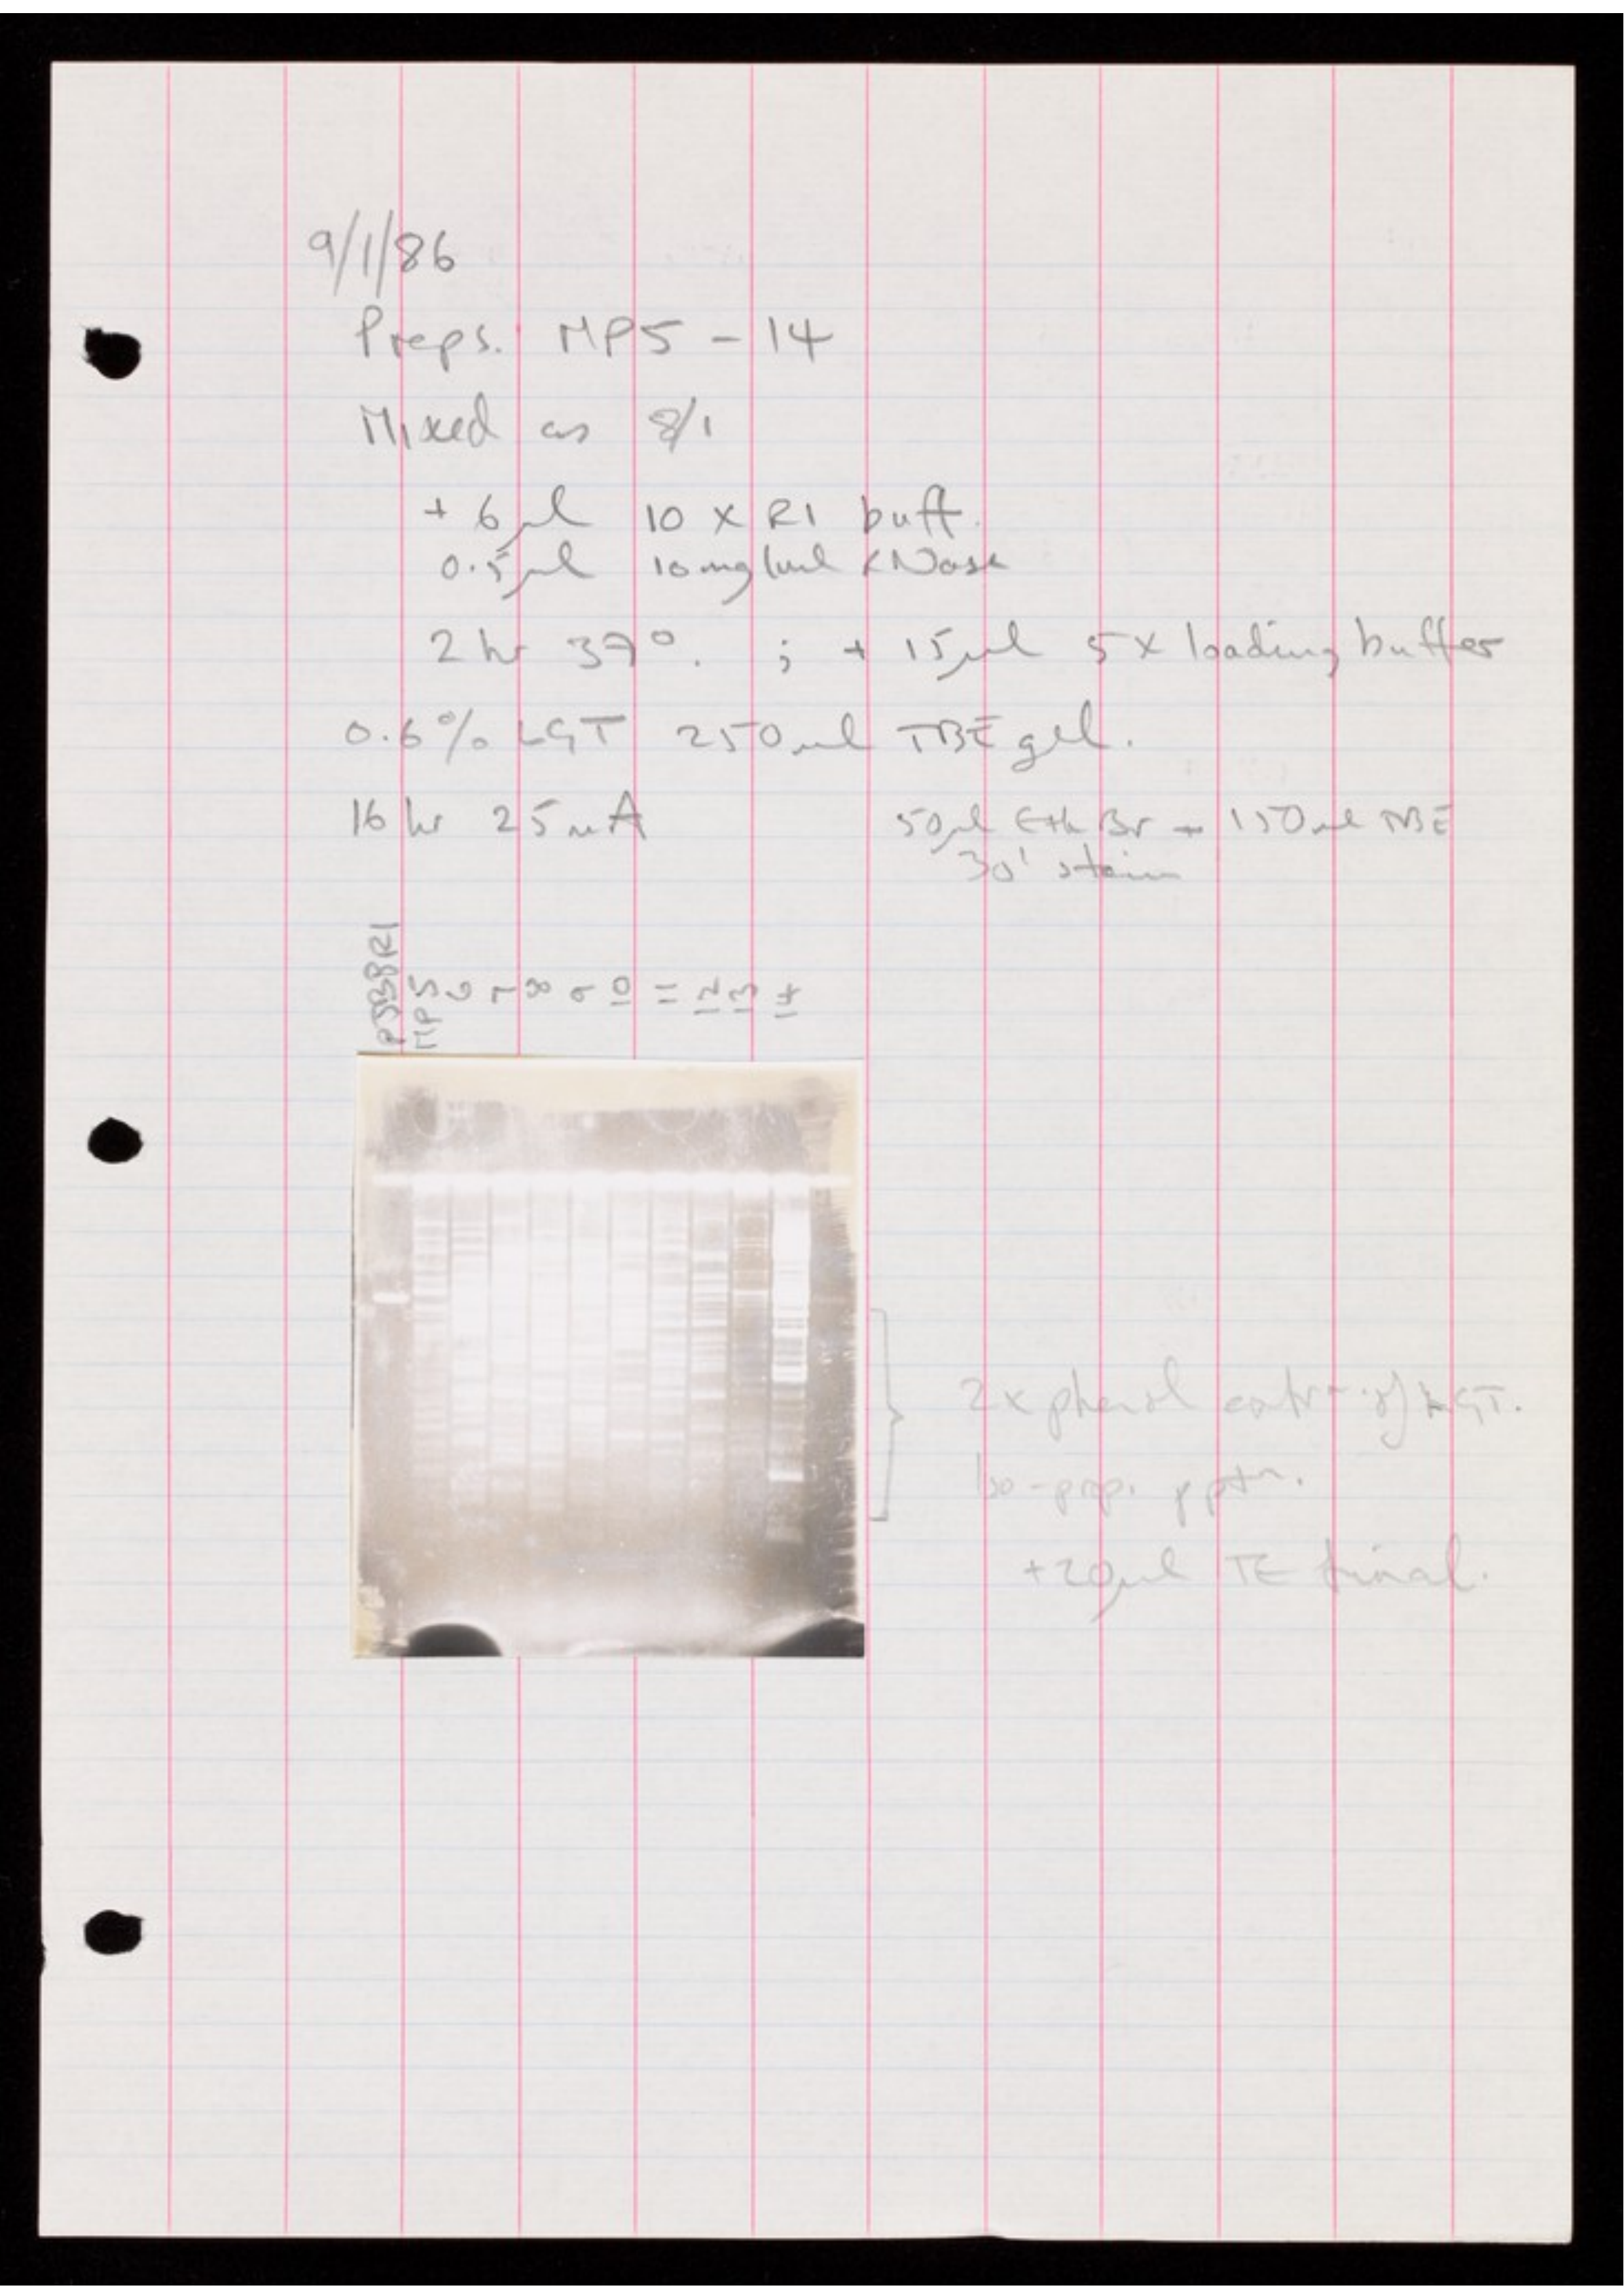 9/1/86
Preps. MP5 - 14
Mixed as 8/1
+ 6μl 10 x RI buff.
0.5μl 10mg/ml RNase
2 hr 37°. ; + 15μl 5x loading buffer
0.6% LGT 250ml TBE gel.
16 hr 25mA
50μl Eth Br + 150ml TBE
30' stain
MP5 6 7 8 9 10 11 12 13 14
2x phenol extr of LGT.
Iso-prop. pptn.
+20μl TE final.